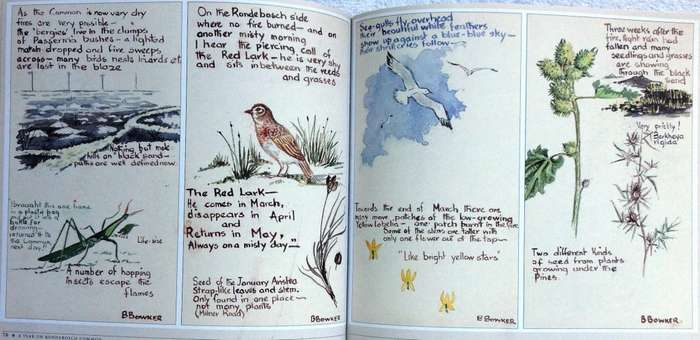 As the Common is now very dry
fires are very possible - as
the 'bergies' live in the clumps
of Passerina bushes - a lighted
match dropped and fire sweeps
across - many birds nests lizards etc
are lost in the blaze
Nothing but mole
hills on "black sand" -
paths are well defined now
Brought this one home
in a plastic bag
bottle for
drawing -
returned to
the Common
next day!
Life-size
A number of hopping
insects escape the
flames
B BOWKER
On the Rondebosch side
where no fire burned - and on
another misty morning
I hear the piercing call of
the Red Lark - he is very shy
and sits inbetween the reeds
and grasses
The Red Lark -
He comes in March,
disappears in April
and
Returns in May,
Always on a misty day -
Seed of the January Aristea
Strap-like leaves and stem.
Only found in one place -
not many plants
(Milner Road)
B BOWKER
Sea-gulls fly overhead
their beautiful white feathers
show up against a blue-blue sky -
their shrill cries follow -
Towards the end of March, there are
many more patches of the low-growing
Yellow Lobelia - one patch burnt in the fire
Some of the stems are taller with
only one flower out at the top -
"Like bright yellow stars"
B BOWKER
Three weeks after the
fire, light rain had
fallen and many
seedlings and grasses
are showing
through the black
sand
Very prickly!
(Berkheya
rigida)
Two different kinds
of seed from plants
growing under the
Pines.
B BOWKER
A YEAR ON RONDEBOSCH COMMON